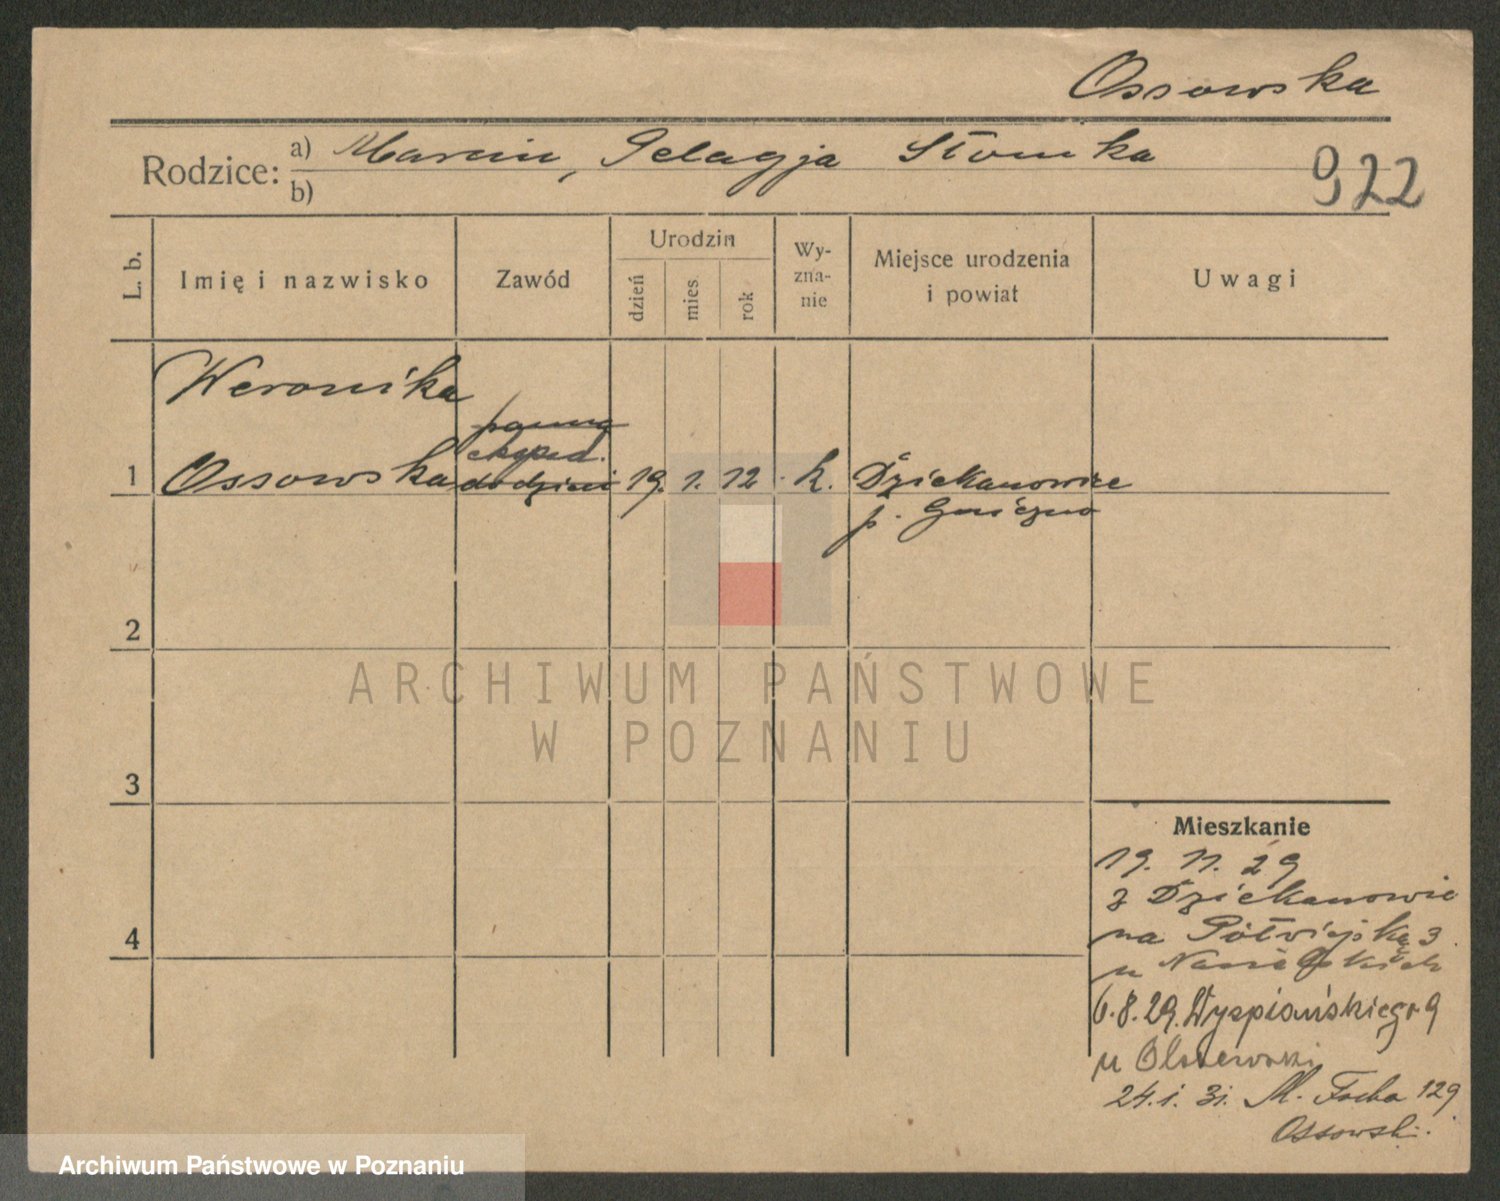 Ossowska
Rodzice: a) Marcin, Pelagja Słomka
b)
922
L. b.
Imię i nazwisko
Zawód
Urodzin
dzień
mies.
rok
Wy-
zna-
nie
Miejsce urodzenia
i powiat
Uwagi
Weronika
panna
eksped.
1 Ossowska do dzieci 19. 1. 12 k. Dziekanowice
p. Gniezno
2
3
4
Mieszkanie
19. 11. 29
z Dziekanowic
na Półwiejską 3
u
6.8.29. Wyspiańskiego 9
u Olszewski
24. 1. 31. M. Focha 129
Ossowski.
ARCHIWUM PAŃSTWOWE
W POZNANIU
Archiwum Państwowe w Poznaniu